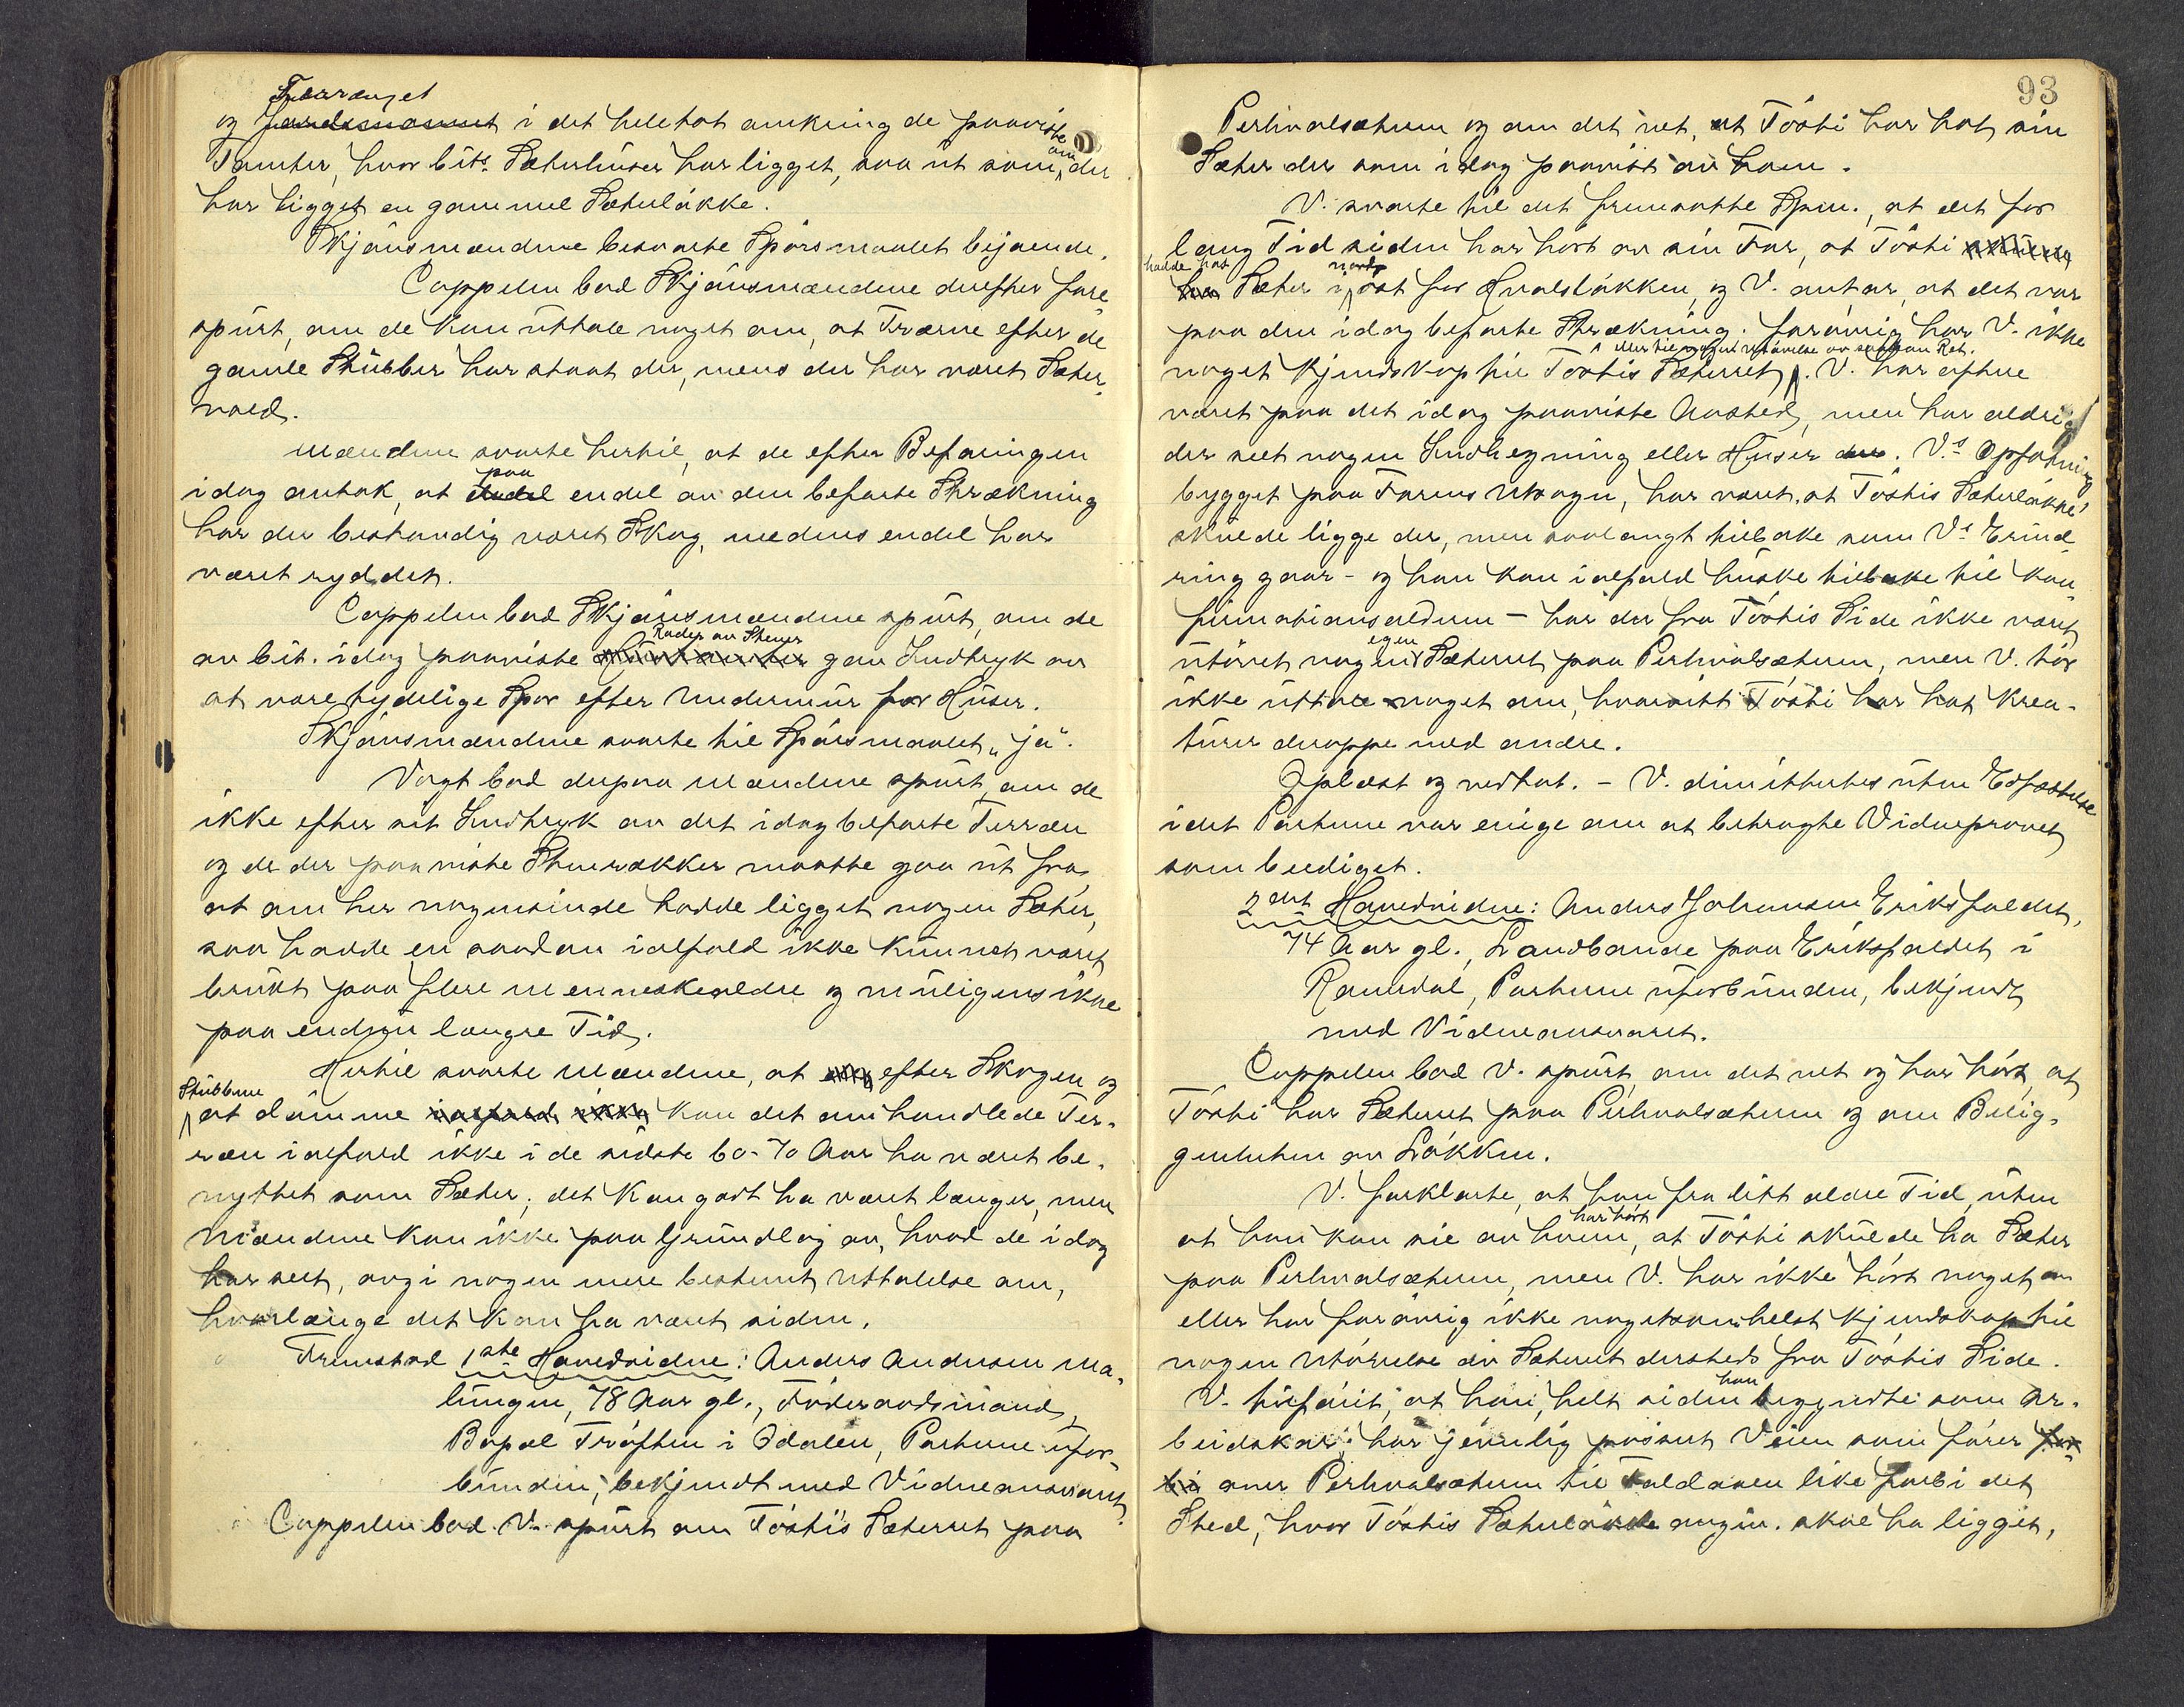 Terrænget
og jordsmonnet i det heletat omkring de paaviste
Tomter, hvor Cits. Sæterhuser har ligget, saa ut som om der
har ligget en gammel Sæterløkke.
Skjønsmændene besvarte Spørsmaalet bejaende.
Cappelen bad Skjønsmændene derefter fore-
spurt, om de kan uttale noget om, at Trærne efter de
gamle Stubber har staat der, mens der har været Sæter-
vold.
Mændene svarte hertil, at de efter Befaringen
idag antok, at paa endel av den befarte Strækning
har der bestandig været Skog, medens endel har
været ryddet.
Cappelen bad Skjønsmændene spurt, om de
av Cit. idag paaviste Rader av Stener gav Indtryk av
at være tydelige Spor efter Undermur for Huser.
Skjønsmændene svarte til Spørsmaalet „ja".
Vogt bad derpaa Mændene spurt, om de
ikke efter sit Indtryk av det idag befarte Terræn
og de der paaviste Stenrækker maatte gaa ut fra,
at om her nogensinde hadde ligget nogen Sæter,
saa hadde en saadan ialfald ikke kunnet været
brukt paa flere Menneskealdre og muligens ikke
paa endnu længre Tid.
Hertil svarte Mændene, at efter Skogen og
Stubbene
at dømme ialfald ikke kan det omhandlede Ter-
ræn ialfald ikke i de sidste 60-70 Aar ha været be-
nyttet som Sæter; det kan godt ha været længer, men
Mændene kan ikke paa Grundlag av, hvad de idag
har seet, avgi nogen mere bestemt Uttalelse om,
hvorlænge det kan ha været siden.
Fremstod 1ste Hovedvidne: Anders Andersen Ma-
lungen, 78 Aar gl., Føderaadsmand,
Bopæl Trøften i Odalen, Parterne ufor-
bunden, bekjendt med Vidneansvaret.
Cappelen bad V. spurt om Tostis Sæterret paa
93
Perhvalsætern og om det vet, at Tosti har hat sin
Sæter der som idag paavist av ham.
V. svarte til det fremsatte Spm., at det for
lang Tid siden har hørt av sin Far, at Tosti
hadde hat Sæter i nordøst for Hvalsløkken, og V. antar, at det var
paa den idag befarte Strækning. Forøvrig har V. ikke
eller til nogen Utøvelse av saadan Ret.
noget Kjendskap til Tostis Sæterret. V. har oftere
været paa det idag paaviste Aasted, men har aldrig
der seet nogen Indhegning eller Huser. V.s Opfatning
bygget paa Farens Utsagn, har været, at Tostis Sæterløkke
skulde ligge der, men saalangt tilbake som V.s Erind-
ring gaar - og han kan ialfald huske tilbake til kon-
firmationsalderen - har der fra Tostis Side ikke været
utøvet nogen egen Sæterret paa Perhvalsætern, men V. tør
ikke uttale noget om, hvorvidt Tosti har hat Krea-
turer deroppe med andre.
Oplæst og vedtat. - V. dimitteres uten Edfæstelse
idet Parterne var enige om at betragte Vidneprovet
som beediget.
2det Hovedvidne: Anders Johansen Eriksfaldet,
74 Aar gl., Landbonde paa Eriksfaldet i
Romedal, Parterne uforbunden, bekjendt
med Vidneansvaret.
Cappelen bad V. spurt, om det vet og har hørt, at
Tosti har Sæterret paa Perhvalsætern og om Belig-
genheten av Løkken.
V. forklarte, at han fra litt ældre Tid, uten
at han kan sie av hvem, har hørt at Tosti skulde ha Sæter
paa Perhvalsætern, men V. har ikke hørt noget om
eller har forøvrig ikke nogetsomhelst Kjendskap til
nogen Utøvelse av Sæterret dersteds fra Tostis Side.
V. tilføiet, at han, helt siden han begyndte som Ar-
beidskar, har jevnlig passert Veien som fører for
bi over Perhvalsætern til Faldaaen like forbi det
Sted, hvor Tostis Sæterløkke angiv. skal ha ligget,